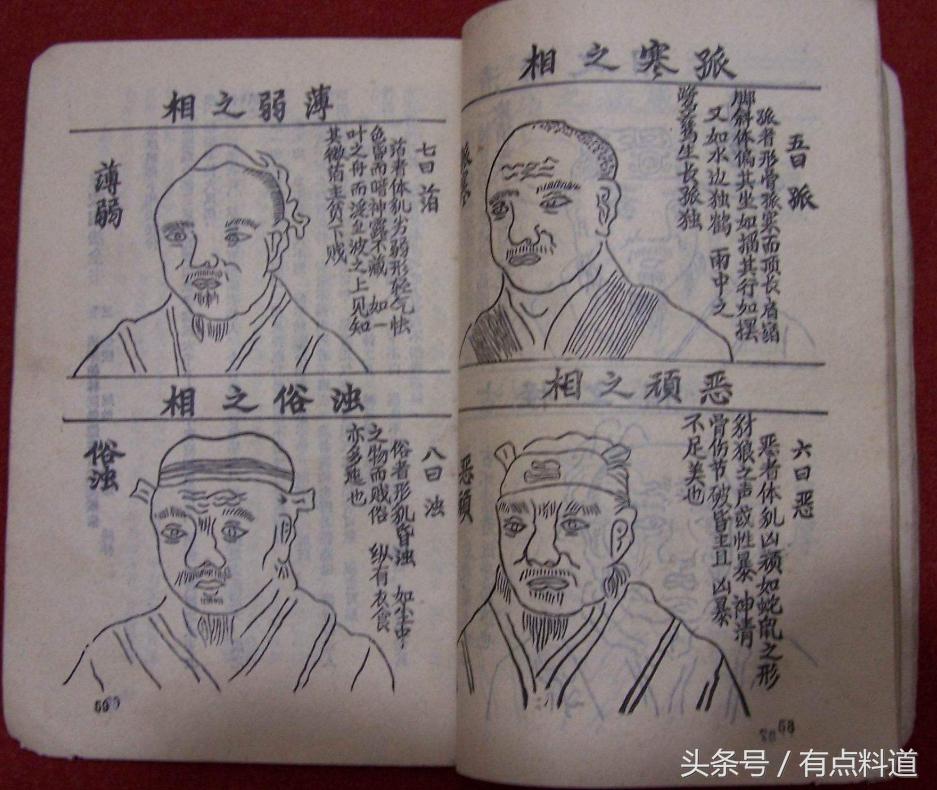 孤寒之相
五曰孤
孤者形骨孤寒而顶长肩缩
脚斜体偏其坐如搨其行如摆
又如水边独鹤 雨中之
生长孤独
孤寒
恶顽之相
六曰恶
恶者体皃凶顽如蛇鼠之形
豺狼之声或性暴 神清
骨伤节破皆主且凶暴
不足美也
恶顽
58
薄弱之相
七曰泊
者体皃劣弱形轻气怯
色昏而暗神露不藏 如一
叶之舟而淀 波之上见知
其微 主贫下贱
薄弱
浊俗之相
八曰浊
俗者形皃昏浊 如尘中
之物而贱俗 纵有衣食
亦多迍也
俗浊
59
头条号 / 有点料道